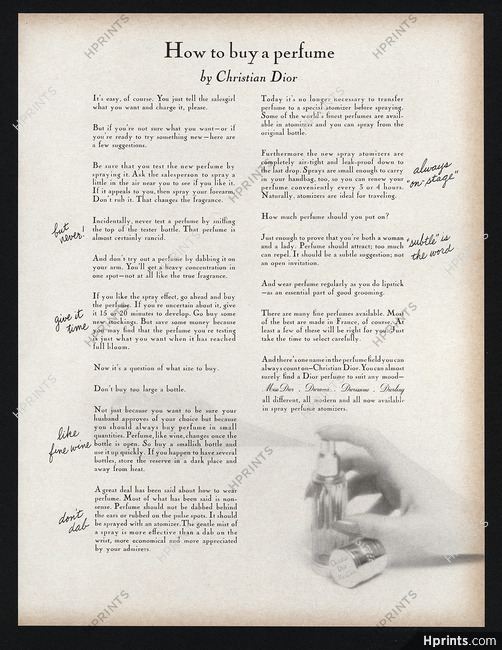 How to buy a perfume
by Christian Dior
It's easy, of course. You just tell the salesgirl
what you want and charge it, please.
But if you're not sure what you want—or if
you're ready to try something new—here are
a few suggestions.
Be sure that you test the new perfume by
spraying it. Ask the salesperson to spray a
little in the air near you to see if you like it.
If it appeals to you, then spray your forearm.
Don't rub it. That changes the fragrance.
but
never!
Incidentally, never test a perfume by sniffing
the top of the tester bottle. That perfume is
almost certainly rancid.
And don't try out a perfume by dabbing it on
your arm. You'll get a heavy concentration in
one spot—not at all like the true fragrance.
give it
time
If you like the spray effect, go ahead and buy
the perfume. If you're uncertain about it, give
it 15 or 20 minutes to develop. Go buy some
new stockings. But save some money because
you may find that the perfume you're testing
is just what you want when it has reached
full bloom.
Now it's a question of what size to buy.
Don't buy too large a bottle.
like
fine wine
Not just because you want to be sure your
husband approves of your choice but because
you should always buy perfume in small
quantities. Perfume, like wine, changes once the
bottle is open. So buy a smallish bottle and
use it up quickly. If you happen to have several
bottles, store the reserve in a dark place and
away from heat.
don't
dab
A great deal has been said about how to wear
perfume. Most of what has been said is non-
sense. Perfume should not be dabbed behind
the ears or rubbed on the pulse spots. It should
be sprayed with an atomizer. The gentle mist of
a spray is more effective than a dab on the
wrist, more economical and more appreciated
by your admirers.
Today it's no longer necessary to transfer
perfume to a special atomizer before spraying.
Some of the world's finest perfumes are avail-
able in atomizers and you can spray from the
original bottle.
Furthermore the new spray atomizers are
completely air-tight and leak-proof down to
the last drop. Sprays are small enough to carry
in your handbag, too, so you can renew your
perfume conveniently every 3 or 4 hours.
Naturally, atomizers are ideal for traveling.
always
"on-stage"
How much perfume should you put on?
Just enough to prove that you're both a woman
and a lady. Perfume should attract; too much
can repel. It should be a subtle suggestion; not
an open invitation.
"subtle" is
the word
And wear perfume regularly as you do lipstick
—as an essential part of good grooming.
There are many fine perfumes available. Most
of the best are made in France, of course. At
least a few of these will be right for you. Just
take the time to select carefully.
And there's one name in the perfume field you can
always count on—Christian Dior. You can almost
surely find a Dior perfume to suit any mood—
Miss Dior . Diorama . Diorissimo . Diorling
all different, all modern and all now available
in spray perfume atomizers.
HPRINTS
Hprints.com